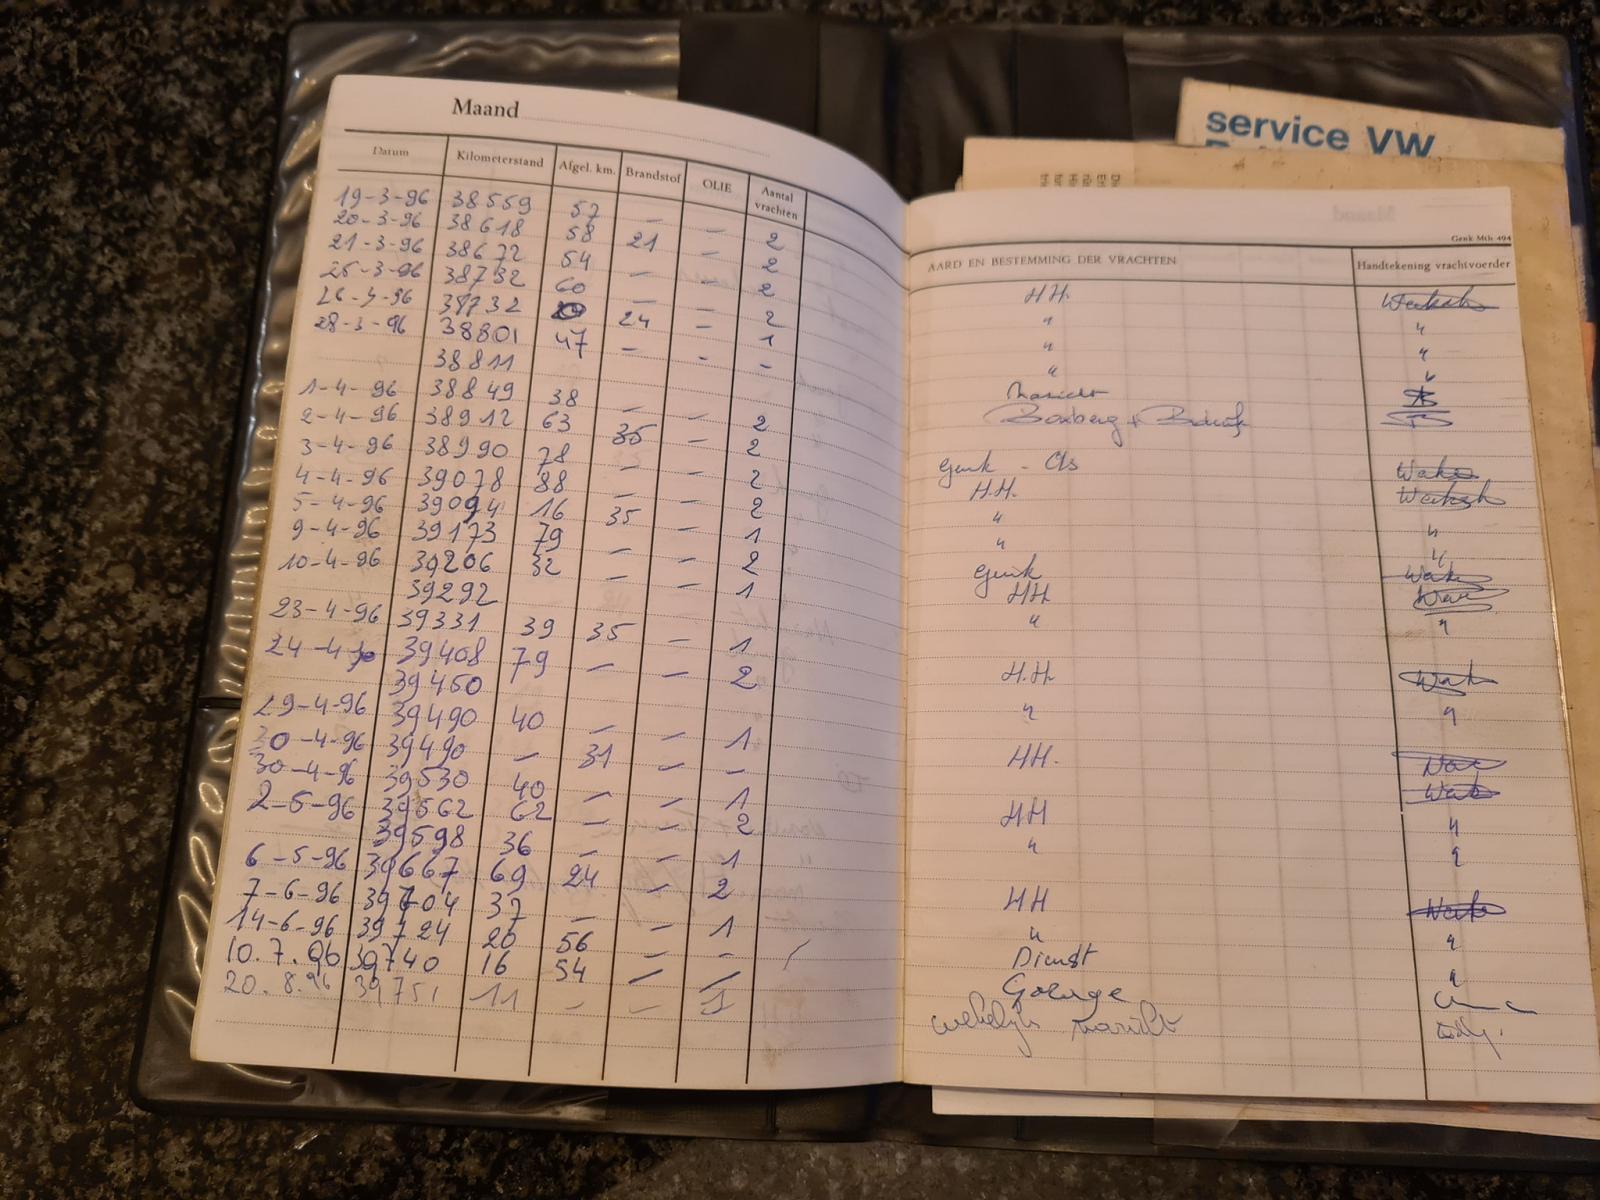 service VW
Maand
Datum Kilometerstand Afgel. km. Brandstof OLIE Aantal vrachten
19-3-96 38559 57 — — 2
20-3-96 38618 58 21 — 2
21-3-96 38672 54 — — 2
25-3-96 38732 60 — — 2
26-3-96 38732 24 — 1
28-3-96 38801 47 — - -
38811
1-4-96 38849 38 — — 2
2-4-96 38912 63 35 — 2
3-4-96 38990 78 — — 2
4-4-96 39078 88 — — 2
5-4-96 39094 16 35 — 1
9-4-96 39173 79 — — 2
10-4-96 39206 32 — — 1
39292
23-4-96 39331 39 35 — 1
24-4 39408 79 — — 2
39450
29-4-96 39490 40 — — 1
30-4-96 39490 — 31 — -
30-4-96 39530 40 — — 1
2-5-96 39562 62 — — 2
39598 36 — — 1
6-5-96 39667 69 24 — 2
7-6-96 39704 37 — — 1
14-6-96 39724 20 56 — -
10.7.96 39740 16 54 — —
20.8.96 39751 11 — — 1
Genk Mth 494
AARD EN BESTEMMING DER VRACHTEN Handtekening vrachtvoerder
HH.
" "
" "
" "
Boxberg +
Genk - As
H.H.
" "
" "
Genk
HH
" "
H.H.
" "
HH.
HH "
" "
HH
" "
Dienst "
Garage